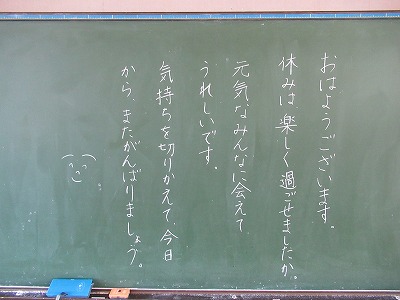 おはようございます。
休みは、楽しく過ごせましたか。
元気なみんなに会えて
うれしいです。
気持ちを切りかえて、今日
から、またがんばりましょう。